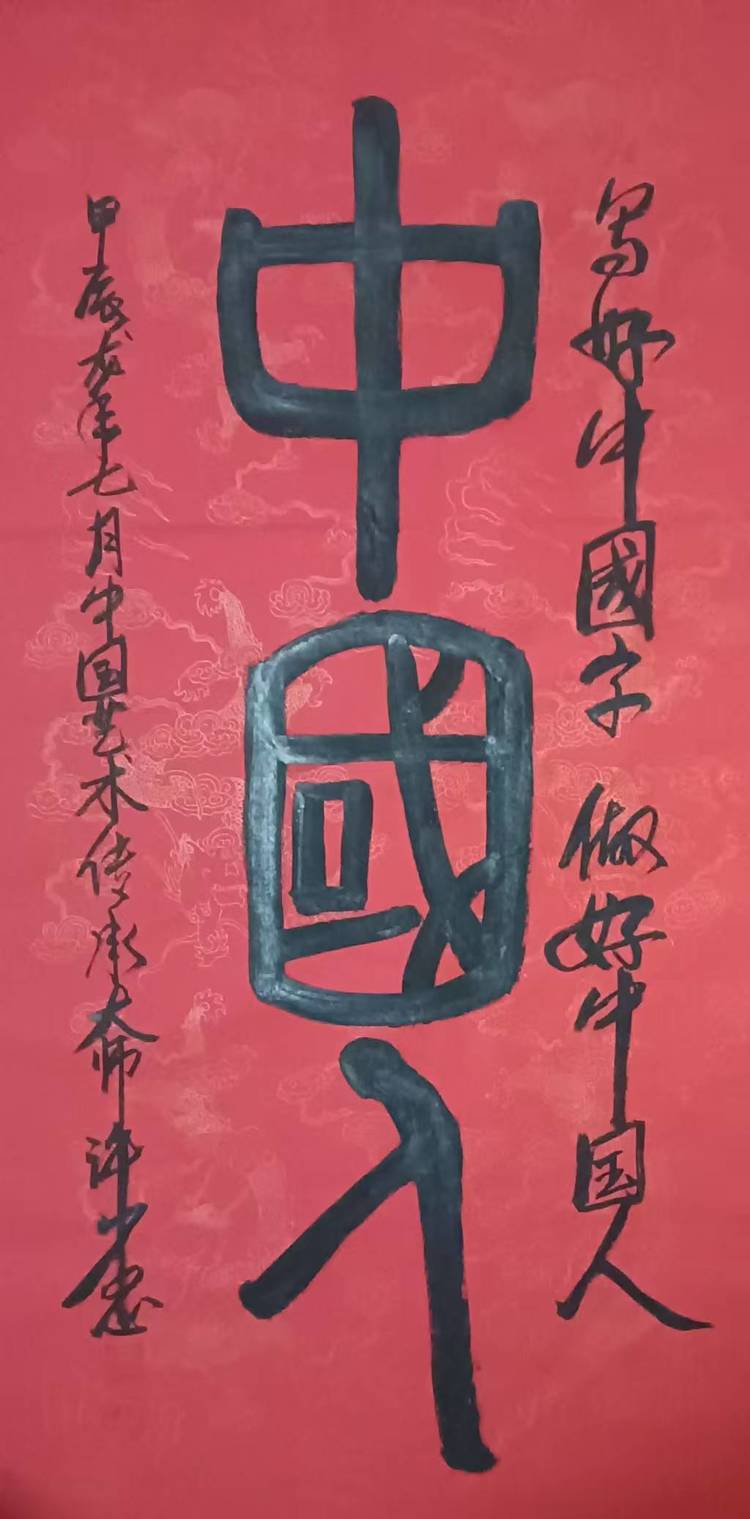 写好中國字 做好中国人
中國人
甲辰龙年七月中国艺术传承大师许少忠